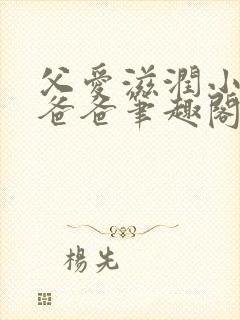 父愛滋潤小
爸爸筆趣閣
楊先